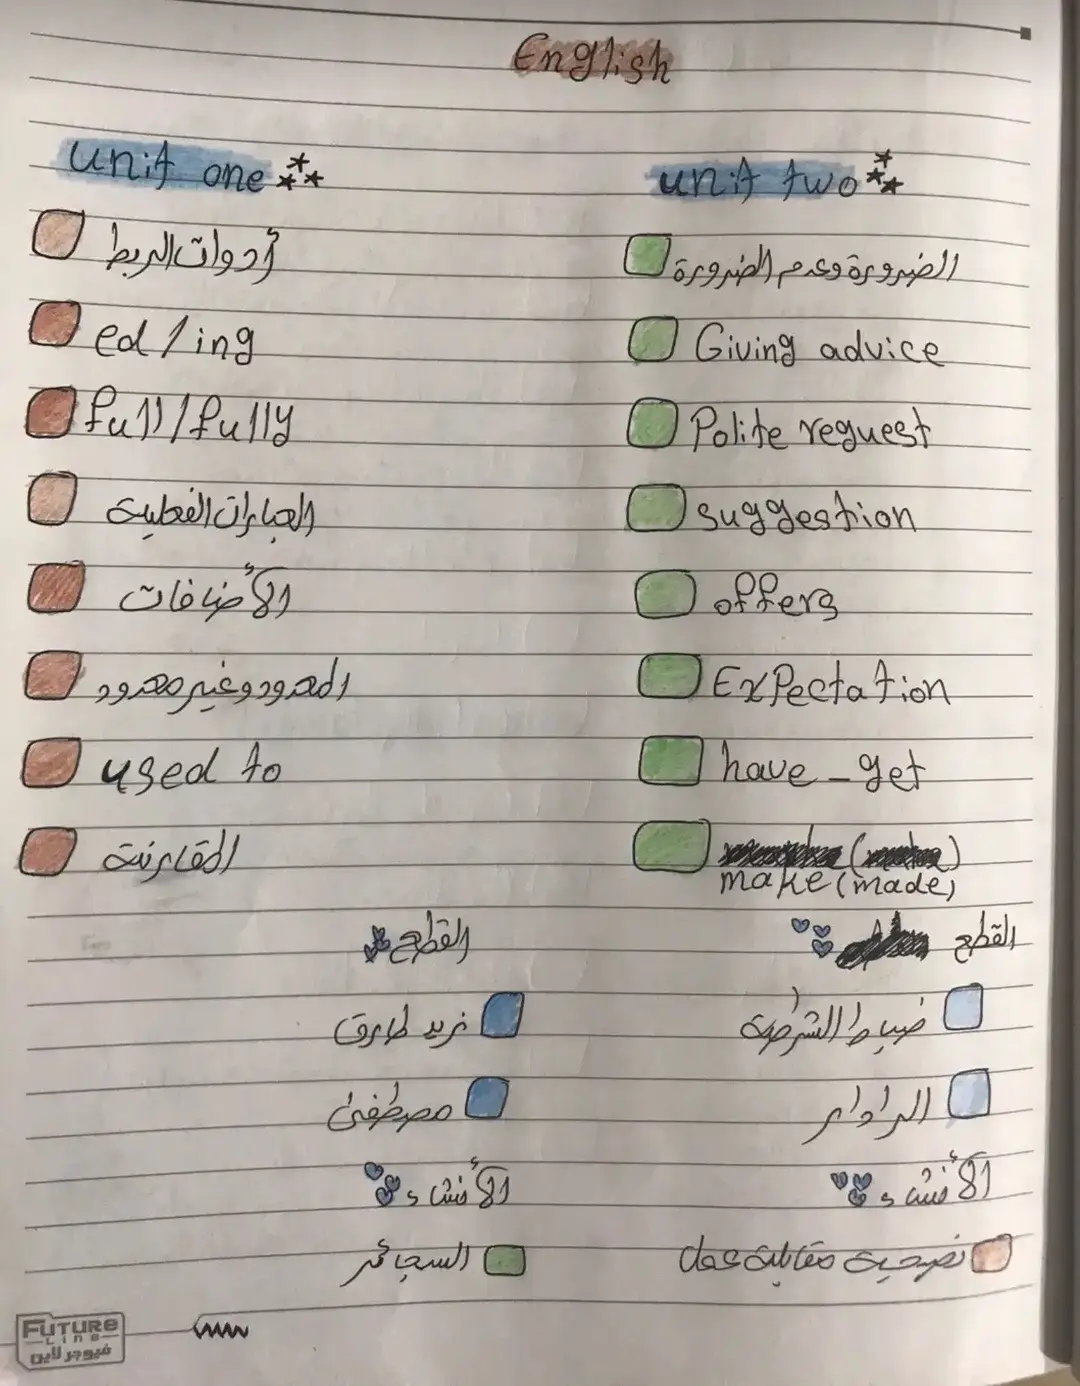 English
unit one
أدوات الربط
ed / ing
full / fully
العبارات الفعلية
الأضافات
المعدود وغير معدود
used to
المقارنة
القطع
نريد طارق
مصطفى
الأنشاء
السجائر
unit two
الضرورة وعدم الضرورة
Giving advice
Polite request
suggestion
offers
Expectation
have - get
make (made)
القطع
ضباط الشرطة
الرادار
الأنشاء
نصيحية مقابلة عمل
FUTURE
Line
فيوجر لاين